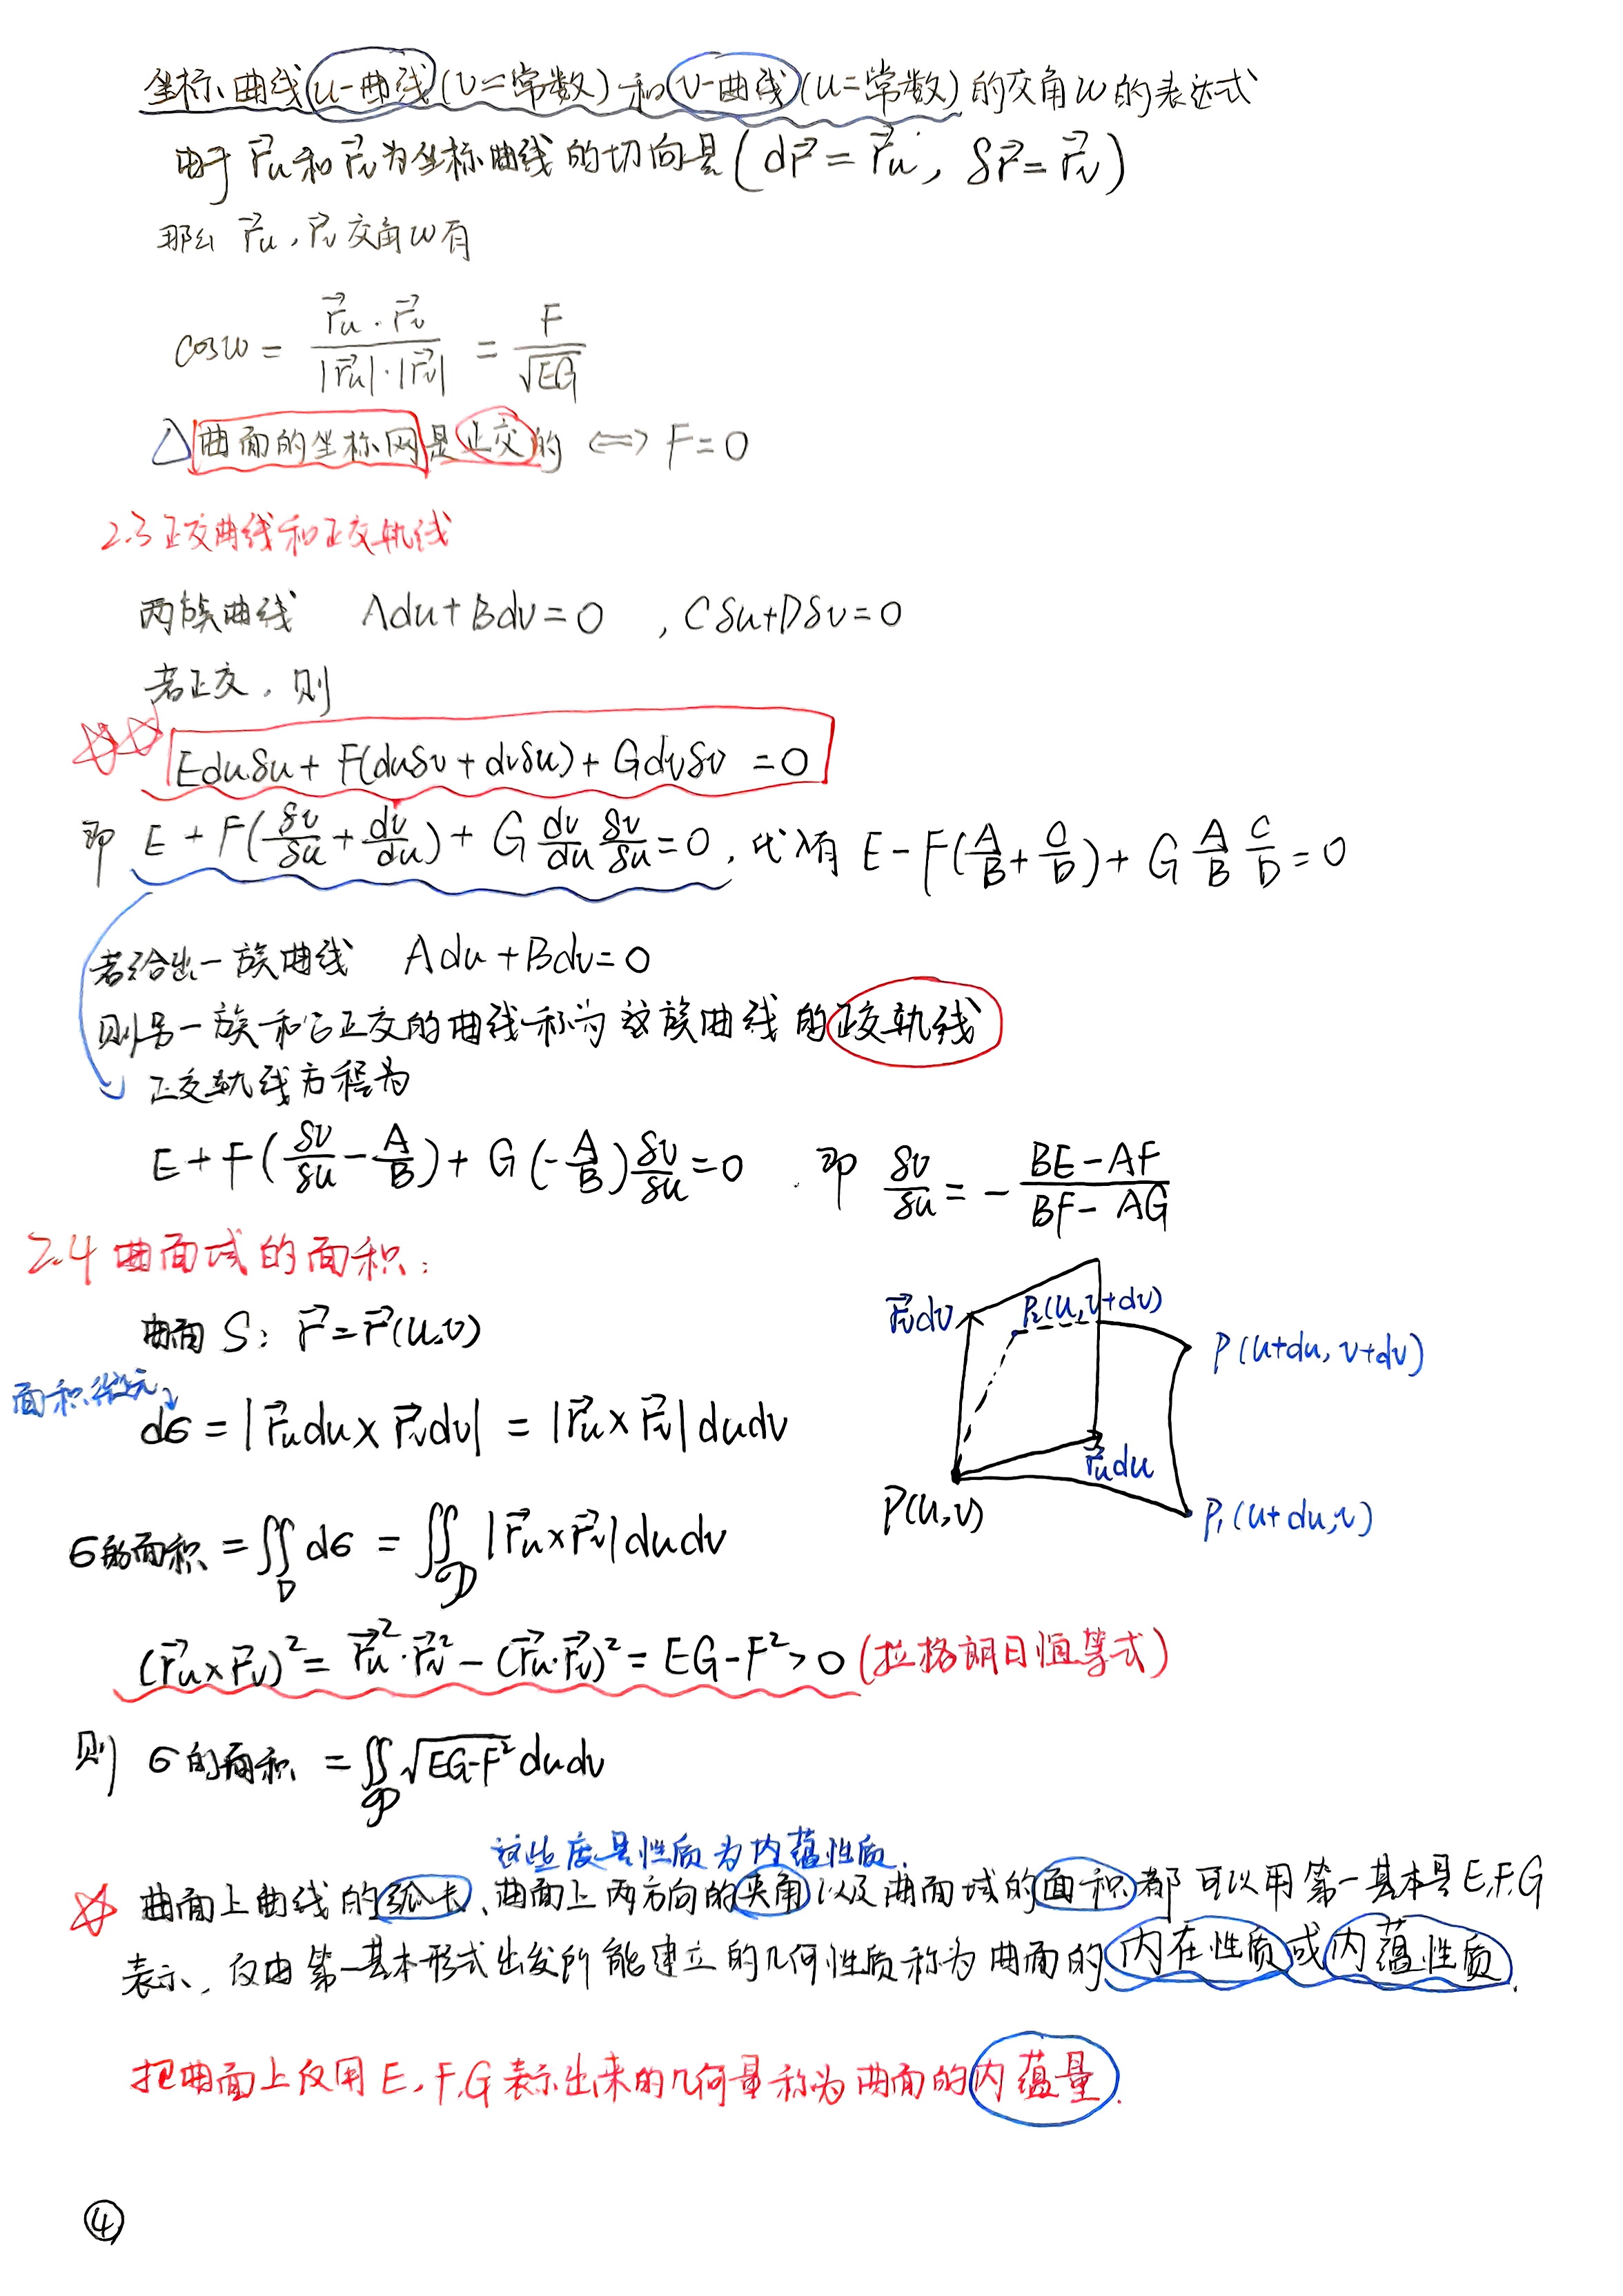 坐标曲线u-曲线(v=常数)和v-曲线(u=常数)的交角w的表达式
由于 r⃗u和r⃗v为坐标曲线的切向量(dr⃗=r⃗u, δr⃗=r⃗v)
那么 r⃗u, r⃗v交角w有
cosw = (r⃗u·r⃗v)/(|r⃗u|·|r⃗v|) = F/√EG
△曲面的坐标网是正交的 ⟺ F=0
2.3 正交曲线和正交轨线
两族曲线 Adu+Bdv=0 , Cδu+Dδv=0
若正交, 则
Eduδu+F(duδv+dvδu)+Gdvδv=0
即 E+F(δv/δu+dv/du)+G dv/du δv/δu=0, 代入有 E-F(A/B+C/D)+G A/B C/D=0
若给出一族曲线 Adu+Bdv=0
则另一族和它正交的曲线称为这族曲线的正交轨线
正交轨线方程为
E+F(δv/δu-A/B)+G(-A/B)δv/δu=0 . 即 δv/δu=-(BE-AF)/(BF-AG)
2.4 曲面域的面积:
曲面 S: r⃗=r⃗(u,v)
面积微元
dσ=|r⃗udu×r⃗vdv|=|r⃗u×r⃗v|dudv
r⃗vdv
P₂(u,v+dv)
P(u+du, v+dv)
r⃗udu
P(u,v)
P₁(u+du,v)
σ的面积=∬D dσ=∬𝒟 |r⃗u×r⃗v|dudv
(r⃗u×r⃗v)²=r⃗u²·r⃗v²-(r⃗u·r⃗v)²=EG-F²>0(拉格朗日恒等式)
则 σ的面积=∬𝒟 √EG-F² dudv
这些度量性质为内蕴性质.
☆ 曲面上曲线的弧长、曲面上两方向的夹角以及曲面域的面积都可以用第一基本量E,F,G
表示, 仅由第一基本形式出发所能建立的几何性质称为曲面的内在性质或内蕴性质.
把曲面上仅用E,F,G表示出来的几何量称为曲面的内蕴量.
④